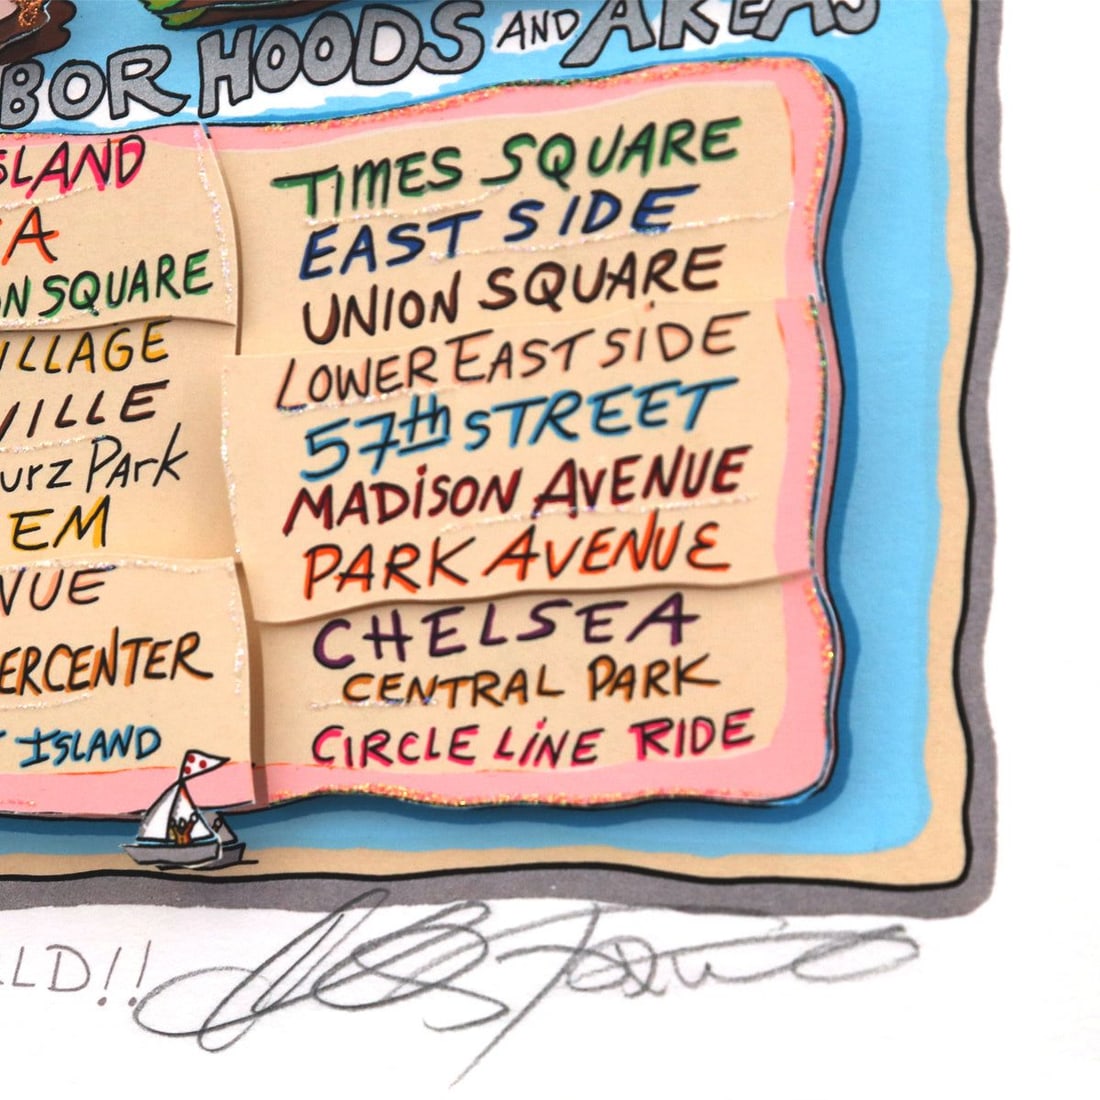 BOR HOODS AND AREAS
SLAND
A
N SQUARE
ILLAGE
VILLE
urz Park
EM
NUE
ERCENTER
ISLAND
TIMES SQUARE
EAST SIDE
UNION SQUARE
LOWER EAST SIDE
57th STREET
MADiSON AVENUE
PARK AVENUE
CHELSEA
CENTRAL PARK
CiRCLE LiNE RIDE
LD!!